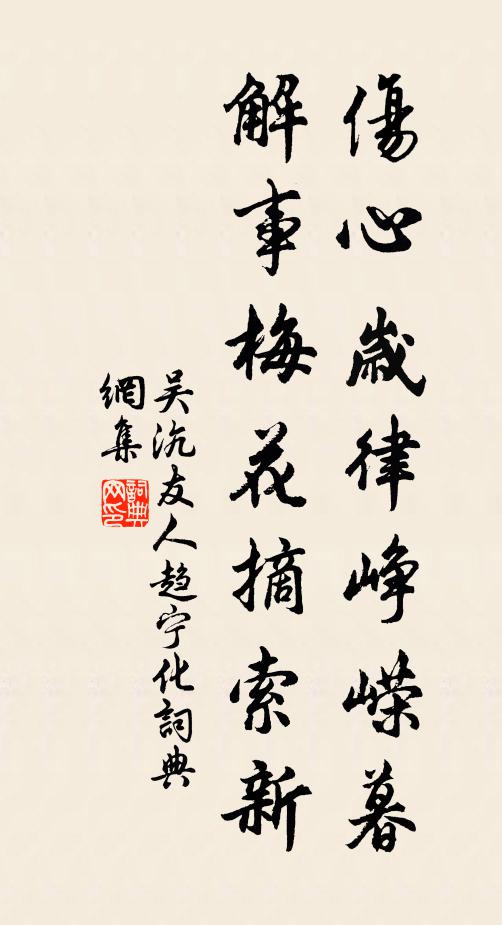 傷心歲律崢嶸暮
解事梅花摘索新
吴沆友人趙宁化詞典
網集
詞典
网印